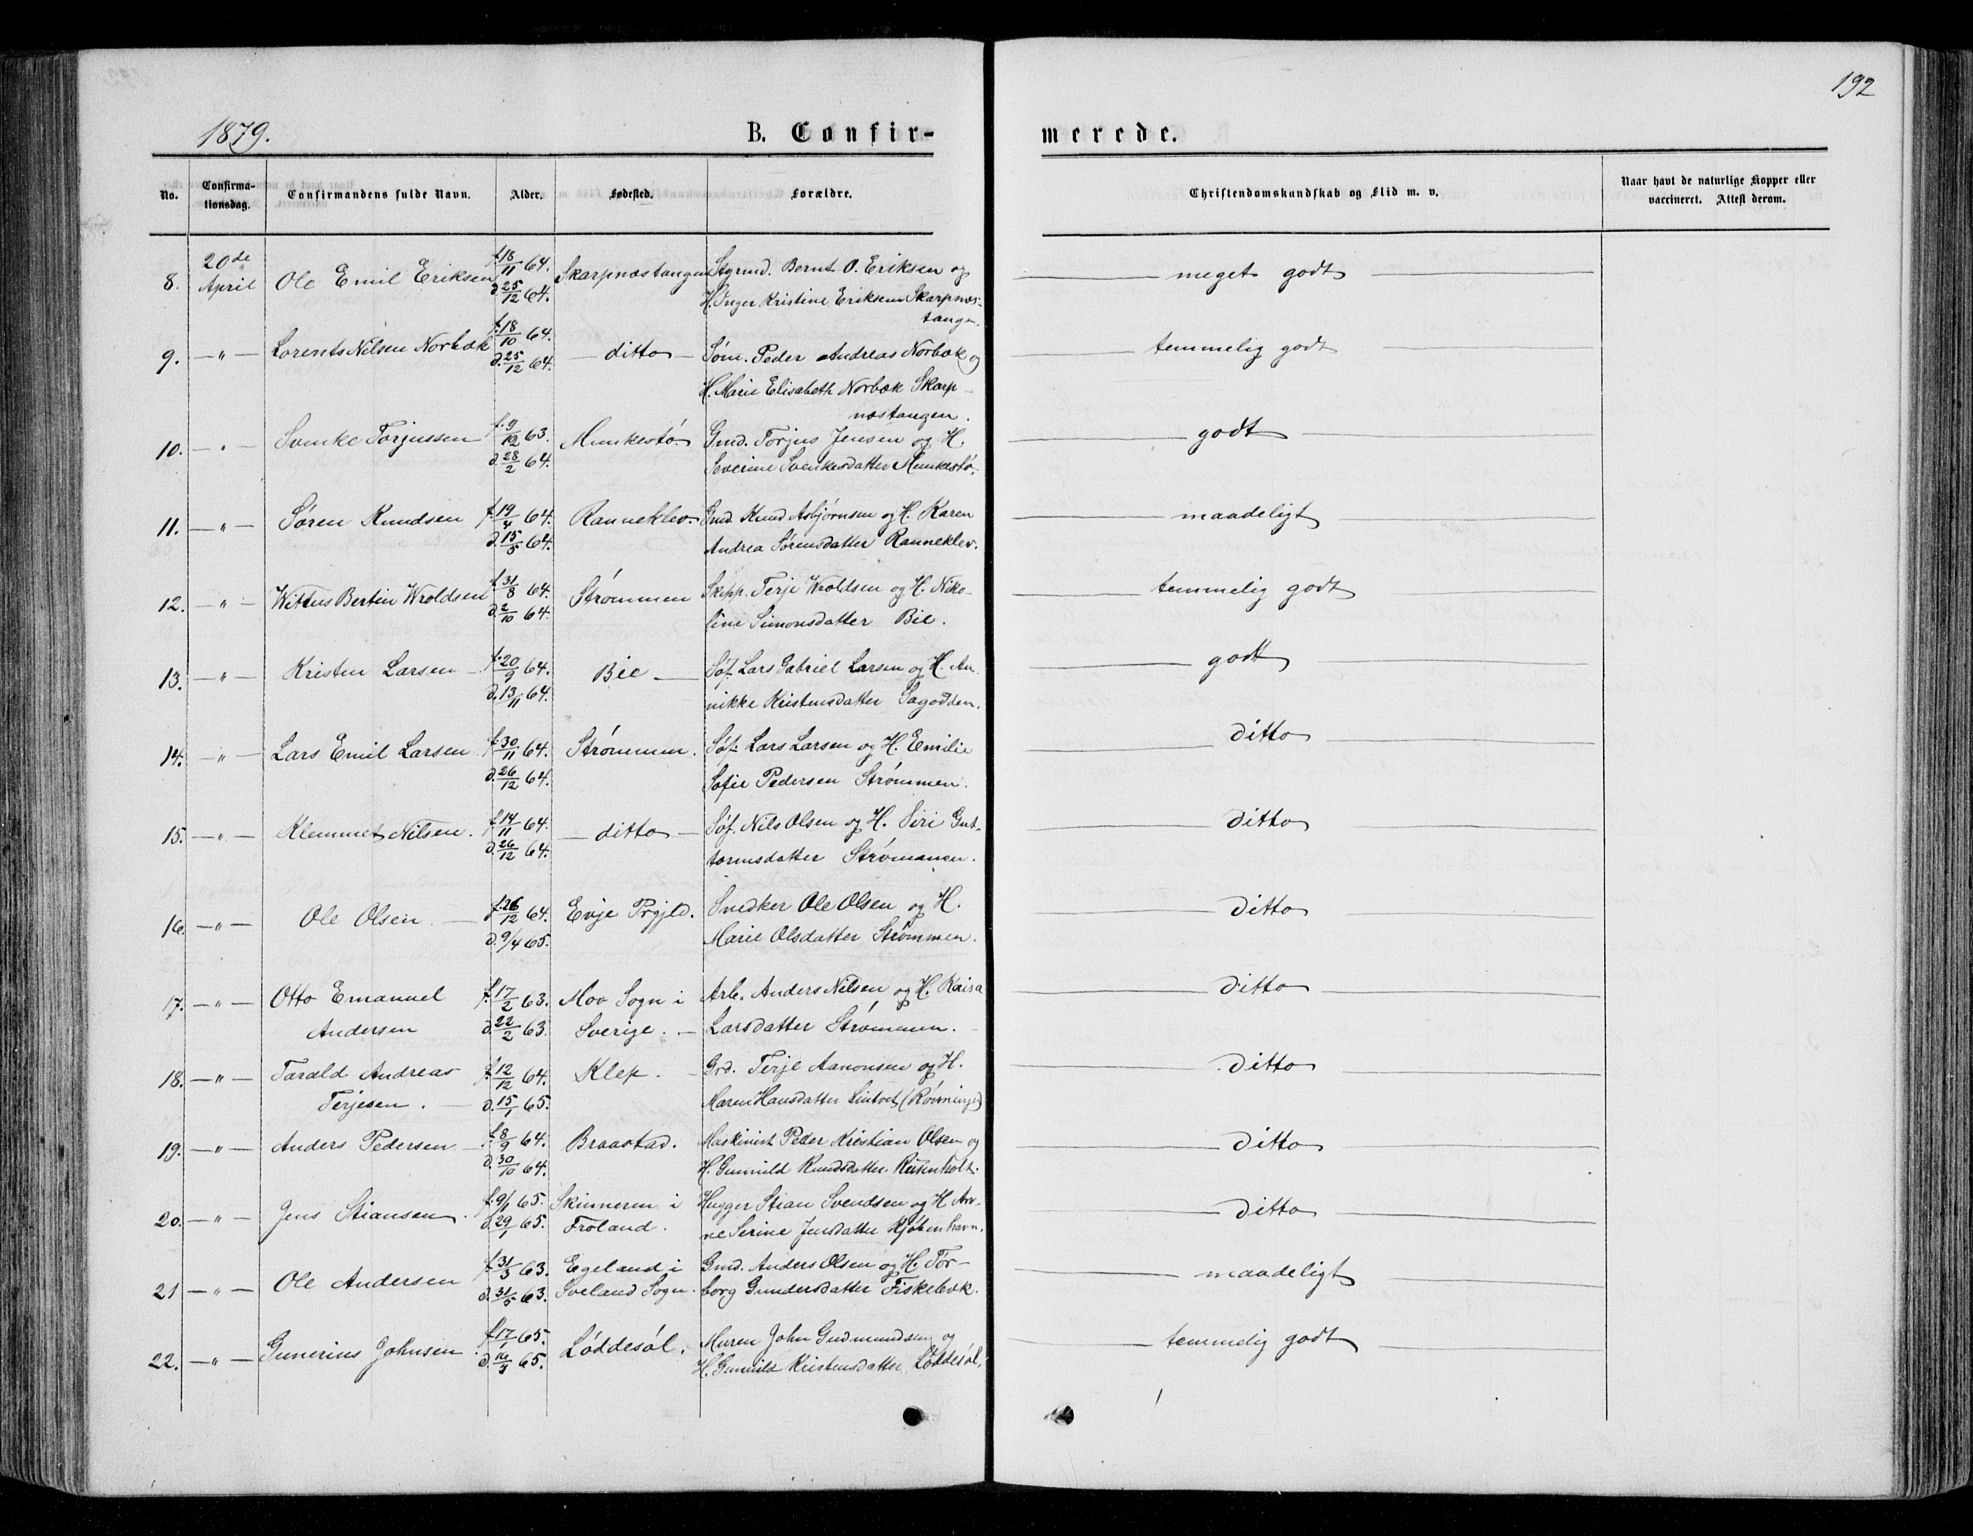 192
1879.
B. Confir-
merede.
No.
Confirma-
tionsdag.
Confirmandens fulde Navn.
Alder.
Fødested.
Forældre.
Christendomskundskab og Flid m. v.
Naar havt de naturlige Kopper eller
vaccineret. Attest derom.
8. 20de April Ole Emil Eriksen f. 18/11 64. Skarpnæstangen Bernt O. Eriksen og meget godt
d. 25/12 64. H. Inger Kristine Eriksen Skarpnæs-
tangen.
9. — " — Lorents Nilsen Norbæk f. 18/10 64. — ditto — Søm. Peder Andreas Norbæk og temmelig godt
d. 25/12 64. H. Marie Elisabeth Norbæk Skarp-
næstangen.
10. — " Svenke Torjussen f. 9/12 63. Munkestø. Gmd. Torjus Jensen og H. godt
d. 28/2 64. Severine Svenkesdatter Munkestø.
11. — " — Søren Knudsen f. 19/4 64. Ranneklev. Gmd. Knud Asbjørnsen og H. Karen maadeligt
d. 15/5 64. Andrea Sørensdatter Ranneklev.
12. — " — Wittus Bertin Wroldsen f. 31/8 64. Strømmen Skipp. Terje Wroldsen og H. Niko- temmelig godt
d. 2/10 64. line Simonsdatter Bie.
13. — " — Kristen Larsen f. 20/9 64. Bie Søf. Lars Gabriel Larsen og H. An- godt
d. 13/11 64. nikke Kristensdatter Sagodden.
14. — " — Lars Emil Larsen f. 30/11 64. Strømmen. Søf. Lars Larsen og H. Emilie ditto
d. 26/12 64. Sofie Pedersen Strømmen.
15. — " — Klemmet Nilsen. f. 14/11 64. — ditto — Søf. Nils Olsen og H. Siri Gut- ditto
d. 26/12 64. tormsdatter Strømmen.
16. — " — Ole Olsen. f. 26/12 64. Evje Prgjld. Snedker Ole Olsen og H. ditto
d. 9/4 65. Marie Olsdatter Strømmen.
17. — " — Otto Emanuel f. 17/2 63. Mov Sogn i Arb. Anders Nilsen og H. Kaisa ditto
Andersen d. 22/2 63. Sverige. Larsdatter Strømmen.
18. — " — Tarald Andreas f. 12/12 64. Klep. Grd. Terje Aanonsen og H. ditto
Terjesen. d. 15/1 65. Maren Hansdatter
19. — " — Anders Pedersen f. 8/9 64. Braastad. Maskinist Peder Kristian Olsen og ditto
d. 30/10 64. H. Gunnild Knudsdatter Reisenholt.
20. — " — Jens Stiansen f. 9/1 65. Skinneren i Hugger Stian Svendsen og H. An- ditto
d. 29/1 65. Froland. ne Serine Jensdatter Kjøbenhavn.
21 — " — Ole Andersen f. 31/3 63. Egeland i Gmd. Anders Olsen og H. Tor- maadeligt
d. 31/5 63. Sveland Sogn. borg Gundersdatter Fiskebæk.
22. — " — Gunerius Johnsen f. 17/1 65. Løddesøl. Murer John Gudmundsen og temmelig godt
65. H. Gunnild Kristensdatter Løddesøl.